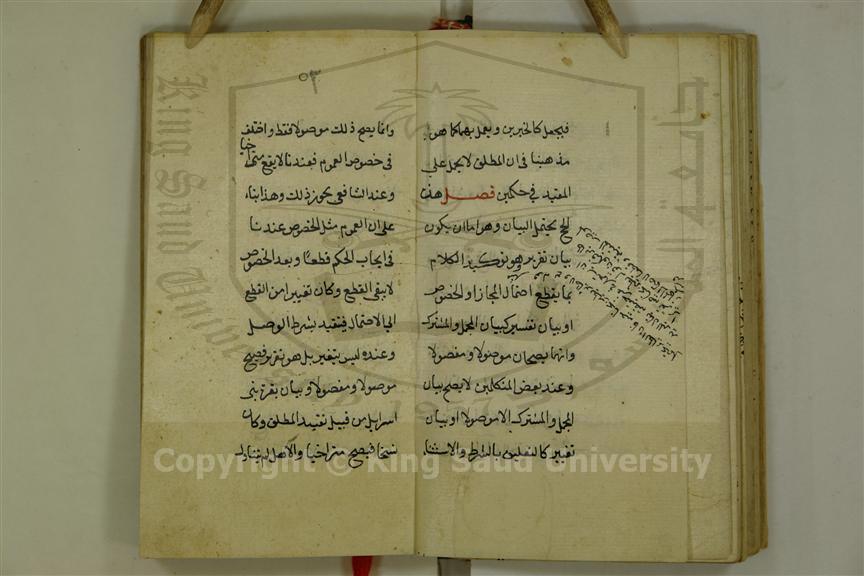 فيجعل كالخبرين ويعمل بهما كما هو
مذهبنا في ان المطلق لا يحمل على
المقيد في حكمين فصل هذه
الحج يحتمل البيان وهو اما ان يكون
بيان تقرير وهو توكيد الكلام
بما يقطع احتمال المجاز او الخصوص
او بيان تفسير كبيان المجمل والمشترك
وانهما يصحان موصولا ومفصولا
وعند بعض المتكلمين لا يصح بيان
المجمل والمشترك الا موصولا او بيان
تغيير كالتعليق بالشرط والاستثناء
٥٢
وانما يصح ذلك موصولا فقط واختلف
في خصوص العموم فعندنا لا يقع متراخيا
وعند الشافعي يجوز ذلك وهذا بناء
على ان العموم مثل الخصوص عندنا
في ايجاب الحكم قطعا وبعد الخصوص
لا يبقى القطع وكان تغييرا من القطع
الى الاحتمال فيتقيد بشرط الوصل
وعنده ليس بتغيير بل هو تقرير فيصح
موصولا ومفصولا وبيان بقرة بني
اسرائيل من قبيل تقييد المطلق وكان
نسخا فيصح متراخيا والاهل لم يتناول
Copyright © King Saud University
King Saud University
جامعة الملك سعود
1957